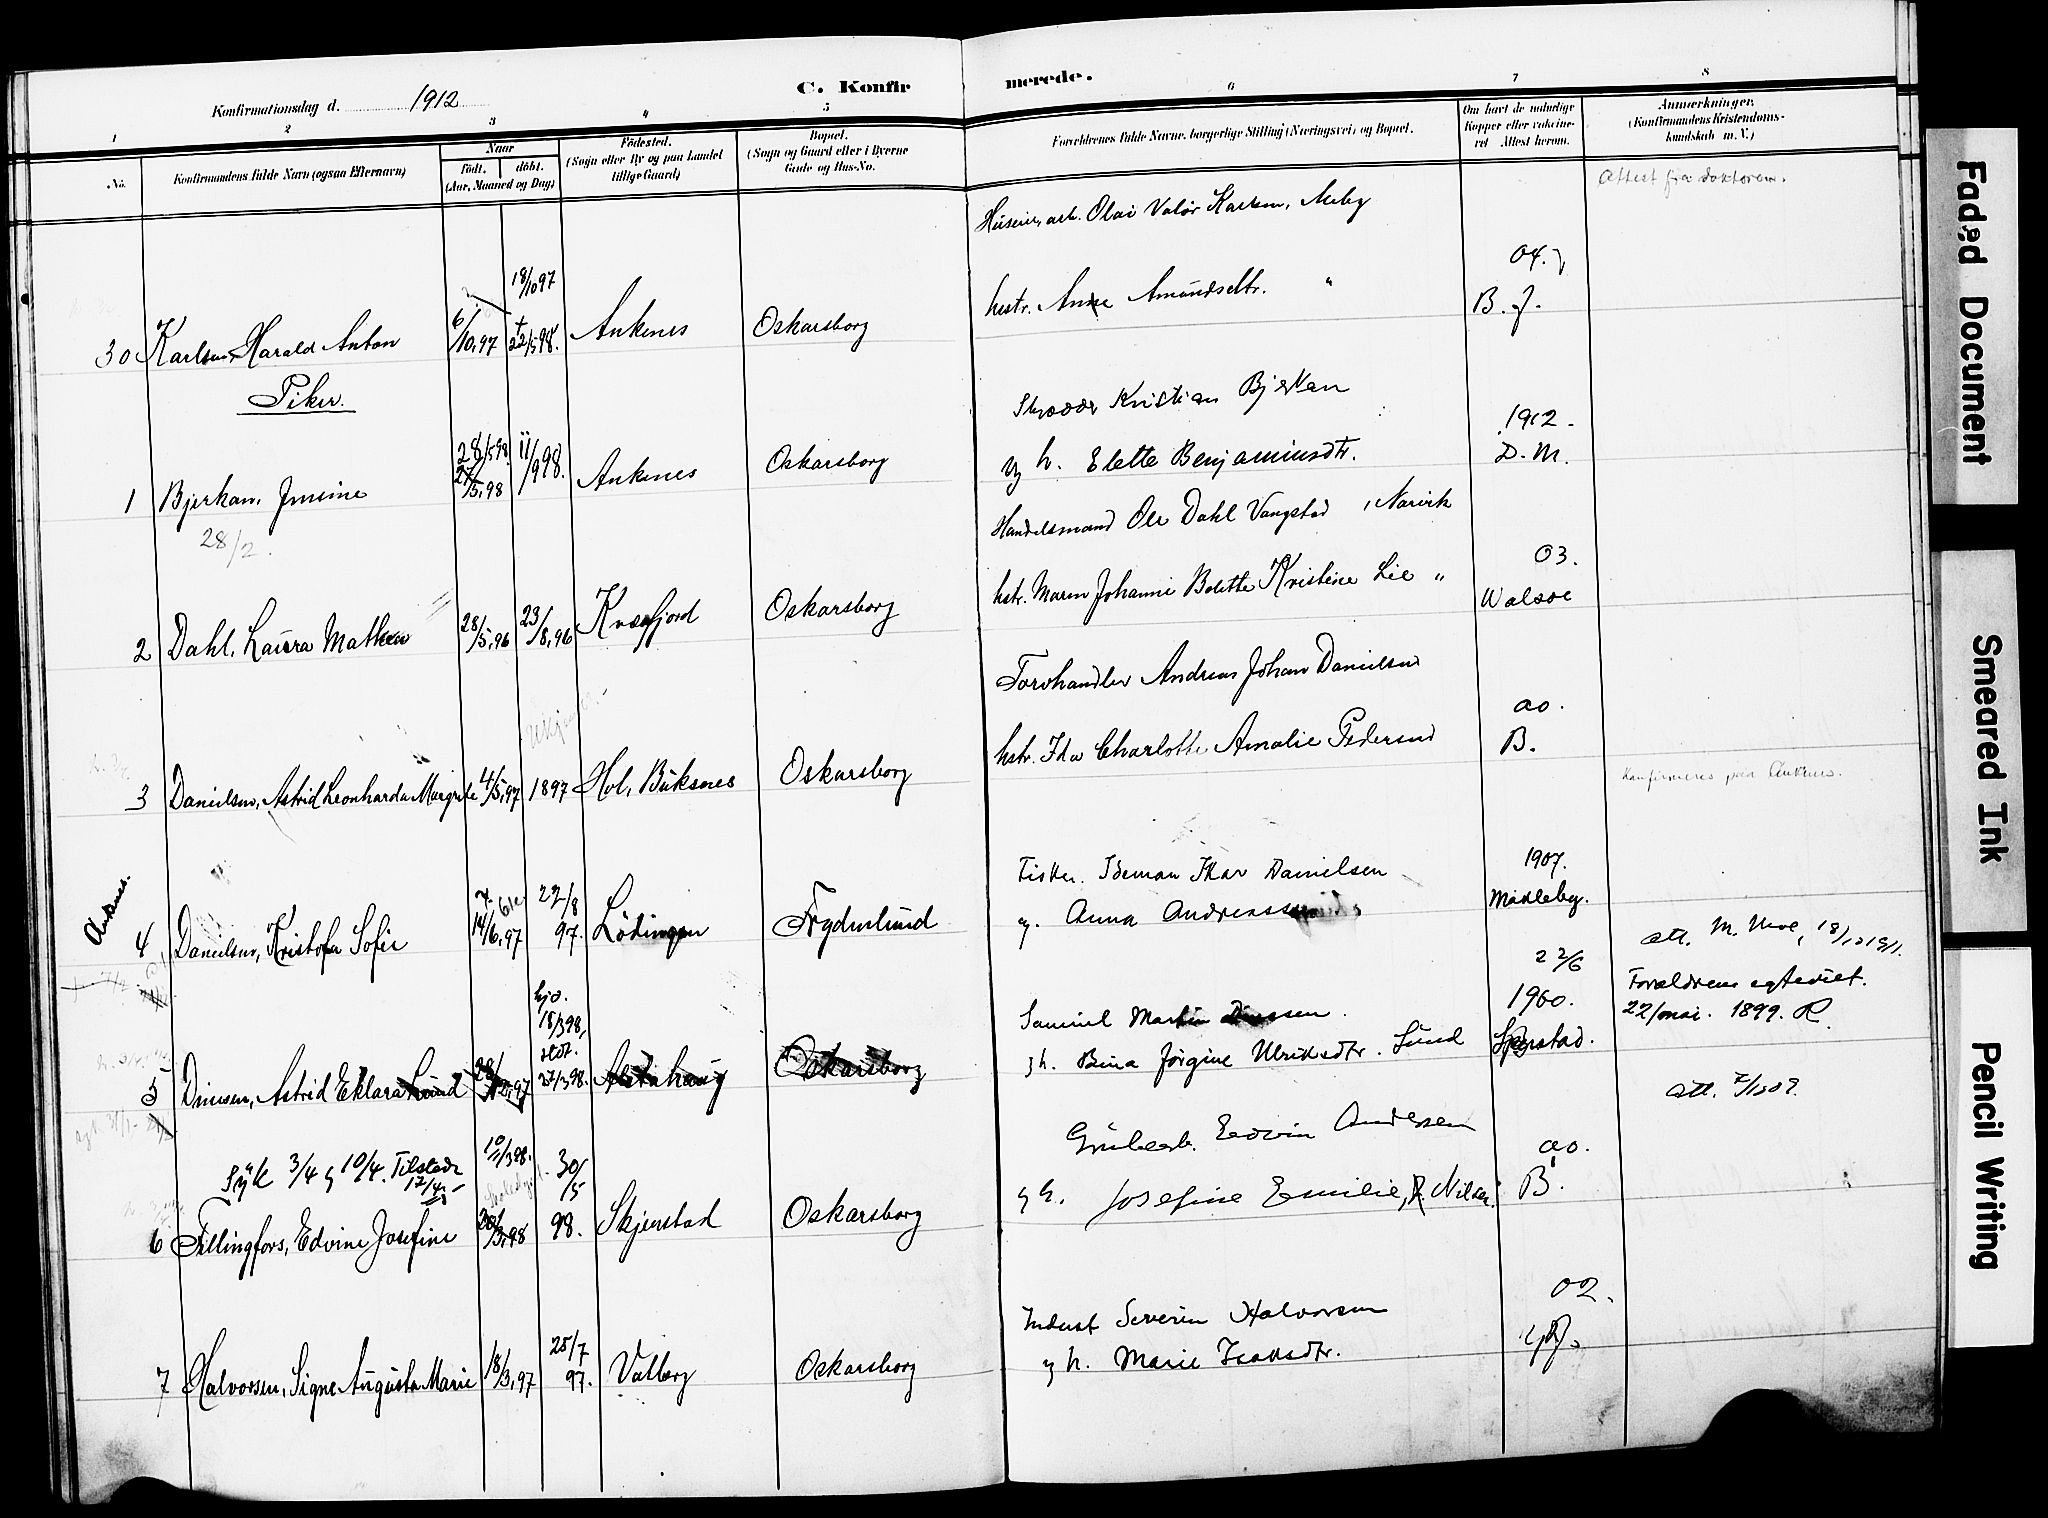 C. Konfirmerede.
Konfirmationsdag d. 1912
1
2
3
4
5
6
7
8
No.
Konfirmandens fulde Navn (ogsaa Efternavn)
Naar
født.
døbt.
(Aar, Maaned og Dag)
Fødested.
(Sogn eller By og paa Landet
tillige Gaard)
Bopæl.
(Sogn og Gaard eller i Byerne
Gade og Hus-No.
Forældrenes fulde Navne, borgerlige Stilling (Næringsvei) og Bopæl.
Om havt de naturlige
Kopper eller vaccine-
ret Attest herom.
Anmærkninger.
(Konfirmandens Kristendoms-
kundskab m. V.)
Attest fra doktoren.
Olai Valør Karlsen, Meby
18/10 97
04.
hustr. Anne Amundsdtr. "
B. J.
30 Karlsen, Harald Anton
6/10, 97
+ 22/5 98.
Ankenes
Oskarsborg
Piker.
Kristian Bjerkan
1912.
28/5 98.
11/9 98.
1 Bjerkan, Jensine
27/5, 98
Ankenes
Oskarsborg
og h. Elette Benjaminsdtr.
D. M.
28/2.
Handelsmand Ole Dahl Vangstad, Narvik
03.
2 Dahl, Laura Mathea
28/5, 96
23/8, 96
Kvæfjord
Oskarsborg
hstr. Maren Johanne Bolette Kristine Lie "
Walsøe
Torvhandler Andreas Johan Danielsen
00.
3 Danielsen, Astrid Leonharda Margrete
4/5, 97
1897
Hol, Buksnes
Oskarsborg
hstr. Ida Charlotte Amalie Pedersen
B.
Konfirmeres paa Ankenes.
Ankenes.
Fisker. Ideman Ikar Danielsen
1907.
4 Danielsen, Kristofa Sofie
14/6, 97
22/8 97.
Lødingen
Frydenlund
og Anna
Middelby.
att. M. Moe,
22/6
1900.
Forældrene egteviet.
22/mai. 1899. R.
hjd.
18/3 98,
stdf.
27/3 98.
Samuel Martin
5 Astrid Eklara Lund
Alstahaug
Oskarsborg
gh. Bina Jørgine Ulriksdtr. Lund
Sperstad.
att.
Syk 3/4 og 10/4. Tilstede
17/4
30/5
98.
Edvin Andersen
00.
6 Fillingfors, Edvine Josefine
Skjerstad
Oskarsborg
g h. Josefine Emilie, Nilsen
B.
Severin Halvorsen
02.
7 Halvorsen, Signe Augusta Marie
18/3, 97
25/7
97.
Valberg
Oskarsborg
g h. Marie Isaksdtr.
Faded Document
Smeared Ink
Pencil Writing